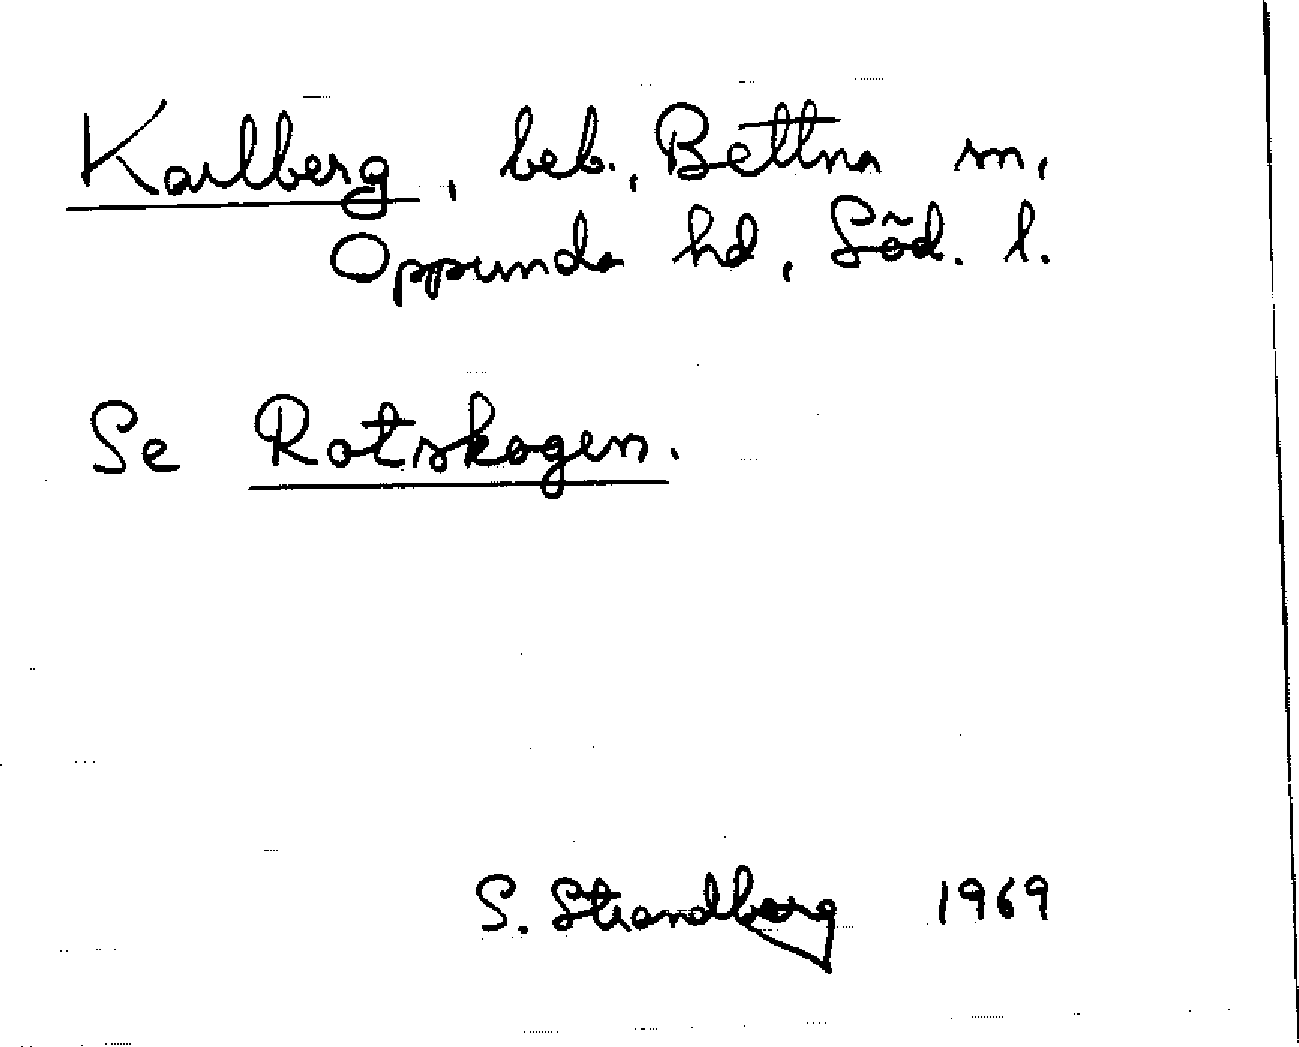 Karlberg, beb., Bettna sn,
Oppunda hd, Söd. l.
Se Rotskogen.
S. Strandberg 1969